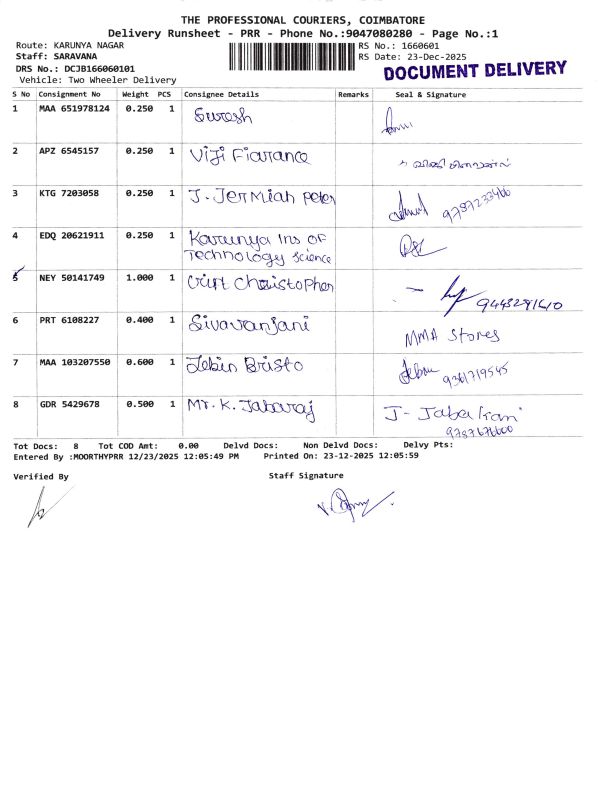 THE PROFESSIONAL COURIERS, COIMBATORE
Delivery Runsheet - PRR - Phone No.:9047080280 - Page No.:1
Route: KARUNYA NAGAR
RS No.: 1660601
Staff: SARAVANA
RS Date: 23-Dec-2025
DRS No.: DCJB166060101
DOCUMENT DELIVERY
Vehicle: Two Wheeler Delivery
S No Consignment No Weight PCS Consignee Details Remarks Seal & Signature
1 MAA 651978124 0.250 1 Suresh
2 APZ 6545157 0.250 1 Viji Fiarance
3 KTG 7203058 0.250 1 J. Jermiah Peter 9787233466
4 EDQ 20621911 0.250 1 Karunya Ins OF
Technology Science
5 NEY 50141749 1.000 1 Christopher
6 PRT 6108227 0.400 1 Sivavanjani MMA Stores
7 MAA 103207550 0.600 1 Jebin Bristo 9361719545
8 GDR 5429678 0.500 1 Mr. K. Jabaraj J-
Tot Docs: 8 Tot COD Amt: 0.00 Delvd Docs: Non Delvd Docs: Delvy Pts:
Entered By :MOORTHYPRR 12/23/2025 12:05:49 PM Printed On: 23-12-2025 12:05:59
Verified By Staff Signature